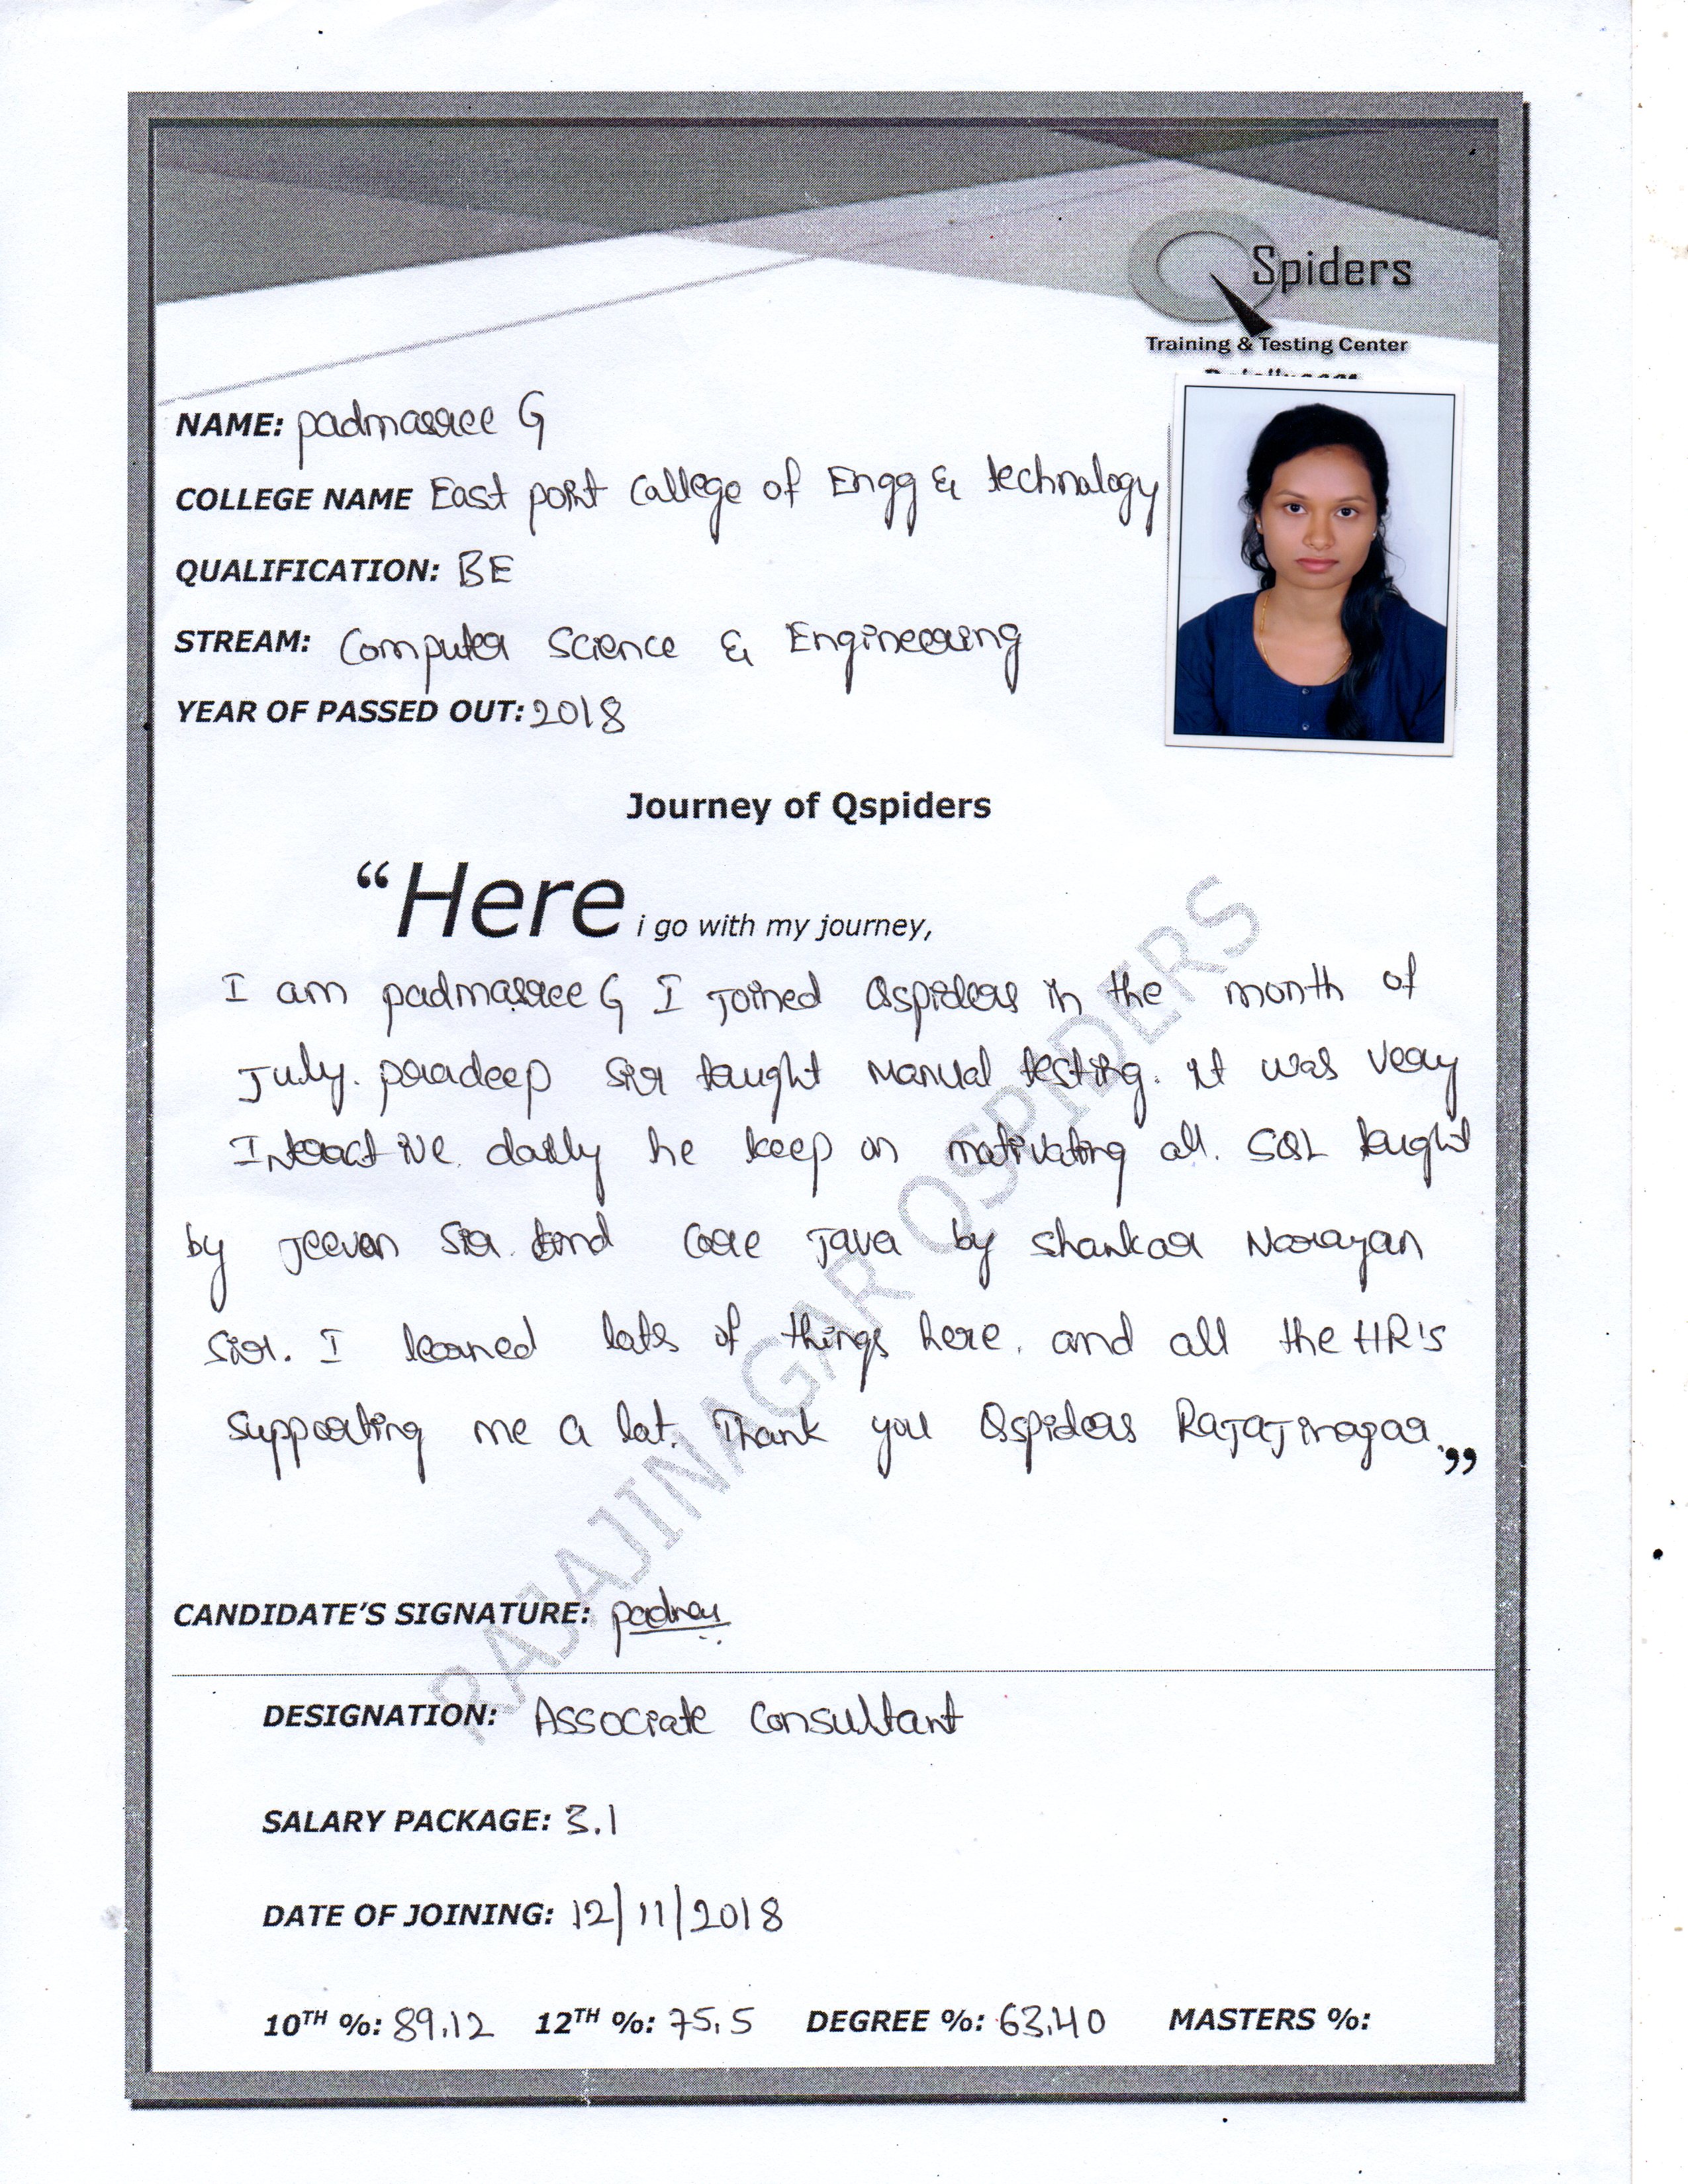 Spiders
Training & Testing Center
NAME: padmasree G
COLLEGE NAME East point College of Engg & technology
QUALIFICATION: BE
STREAM: Computer Science & Engineering
YEAR OF PASSED OUT: 2018
Journey of Qspiders
“Here i go with my journey,
I am padmasree G I Joined Qspiders in the month of
July. pradeep Sir taught Manual testing. it was very
Interactive. daily he keep on motivating all. SQL taught
by Jeevan Sir. and Core Java by Shankar Narayan
Sir. I learned lots of things here. and all the HR's
Supporting me a lot. Thank you Qspiders Rajajinagar.”
RAJAJINAGAR QSPIDERS
CANDIDATE’S SIGNATURE:
DESIGNATION: Associate Consultant
SALARY PACKAGE: 3.1
DATE OF JOINING: 12/11/2018
10TH %: 89.12 12TH %: 75.5 DEGREE %: 63.40 MASTERS %: